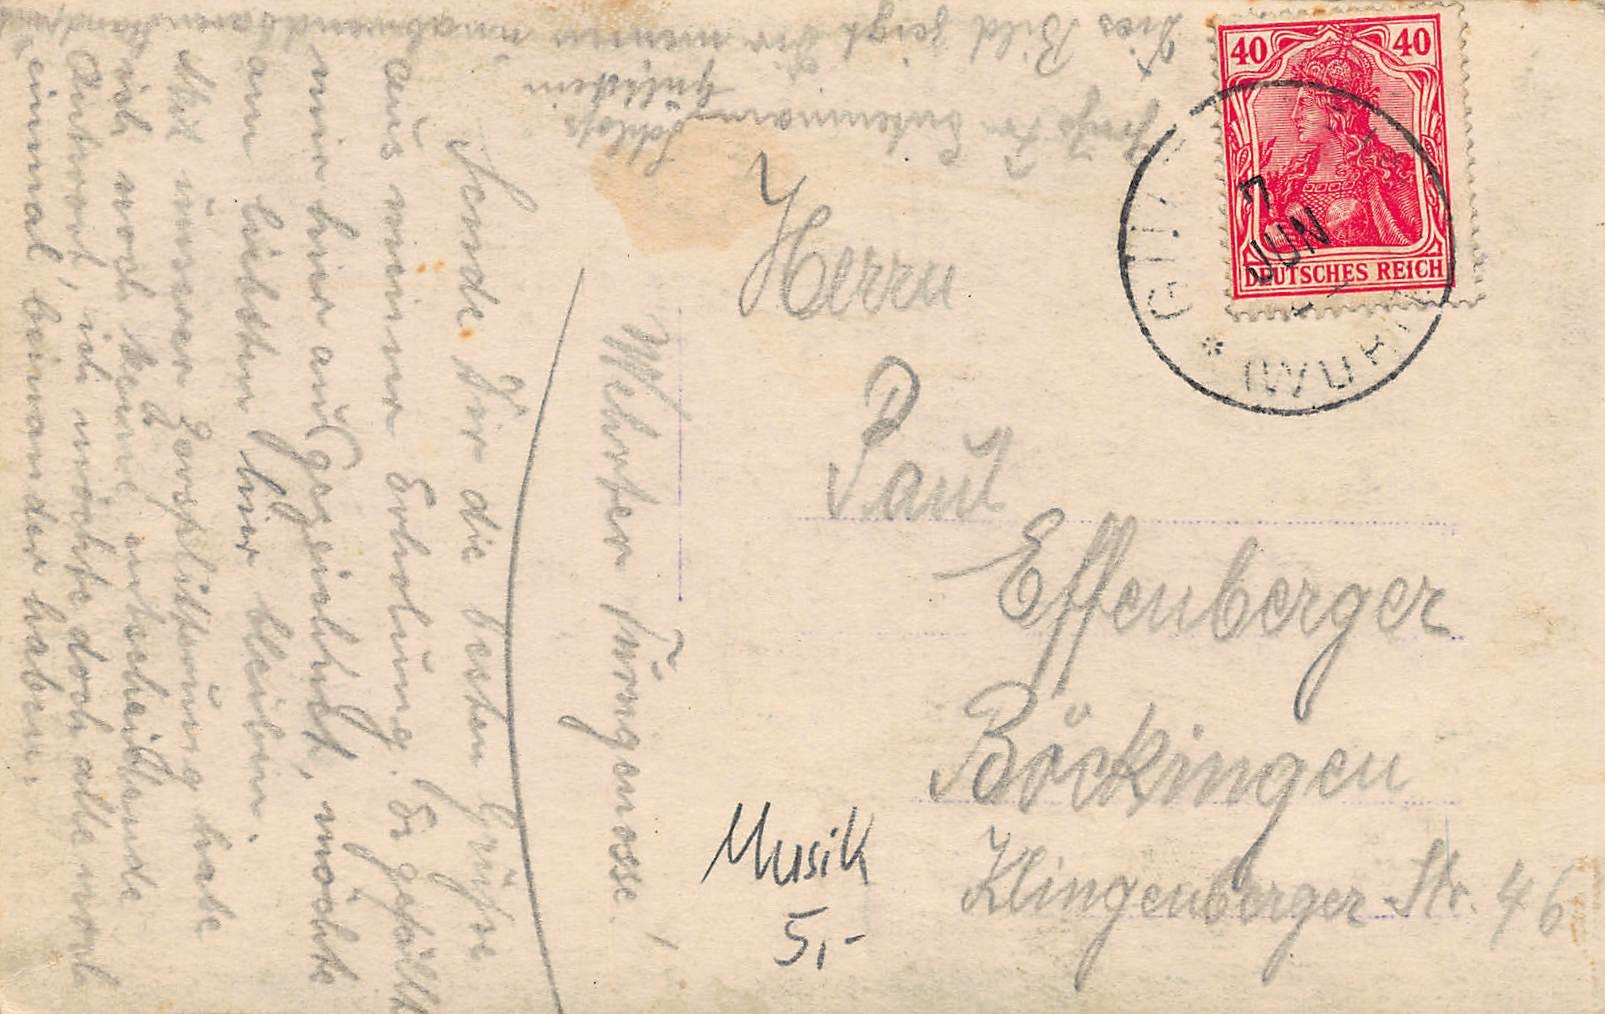 Werter Turngenosse!
Sende Dir die besten Grüße
aus meiner Erholung. Es gefällt
mir hier ausgezeichnet, möchte
am liebsten hier bleiben.
Mit unserer Zersplitterung habe
ich noch keine entscheidende
Antwort, ich möchte doch alle noch
einmal beinander haben.
Dies Bild zeigt Dir meinen
Schloss
Herrn
Paul
Effenberger
Böckingen
Klingenberger Str. 46
Musik
5,-
40 40
DEUTSCHES REICH
7
JUN